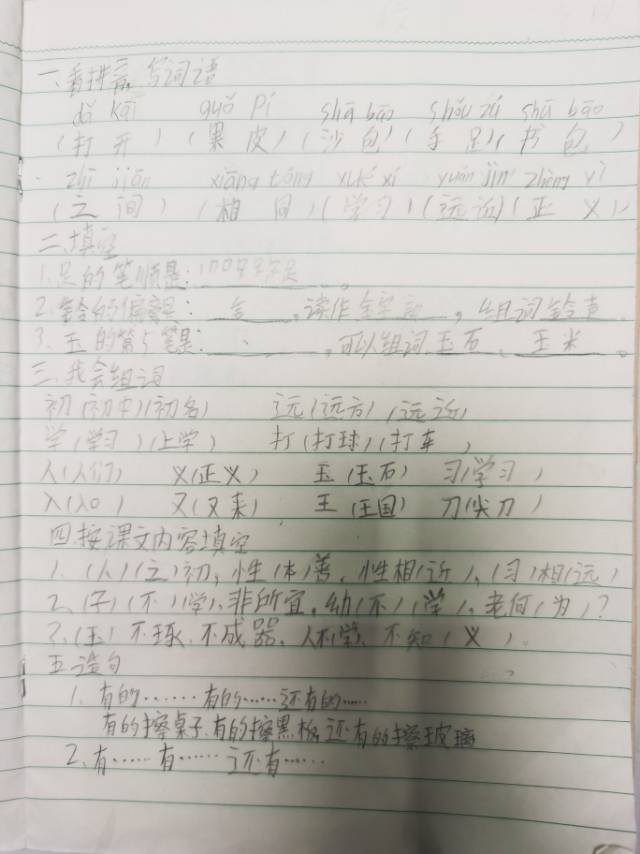 一、看拼音,写词语
dǎ kāi guǒ pí shā bāo shǒu zú shū bāo
(打开)(果皮)(沙包)(手足)(书包)
zhī jiān xiāng tóng xué xí yuǎn jìn zhèng yì
(之间)(相同)(学习)(远近)(正义)
二、填空
1.足的笔顺是:
2.铃的偏旁是: 钅 ,读作金字旁,组词铃声
3.玉的第5笔是: 、 ,可以组词玉石、玉米。
三、我会组词
初(初中)(初名) 远(远方)(远近)
学(学习)(上学) 打(打球)(打车)
人(人们) 义(正义) 玉(玉石) 习(学习)
入(入口) 又(又来) 王(王国) 刀(尖刀)
四、按课文内容填空
1.(人)(之)初,性(本)善,性相(近),(习)相(远)
2.(子)(不)(学),非所宜,幼(不)(学),老何(为)?
3.(玉)不琢,不成器,人不学,不知(义)。
五、造句
1.有的……有的……还有的……
有的擦桌子,有的擦黑板,还有的擦玻璃
2.有……有……还有……